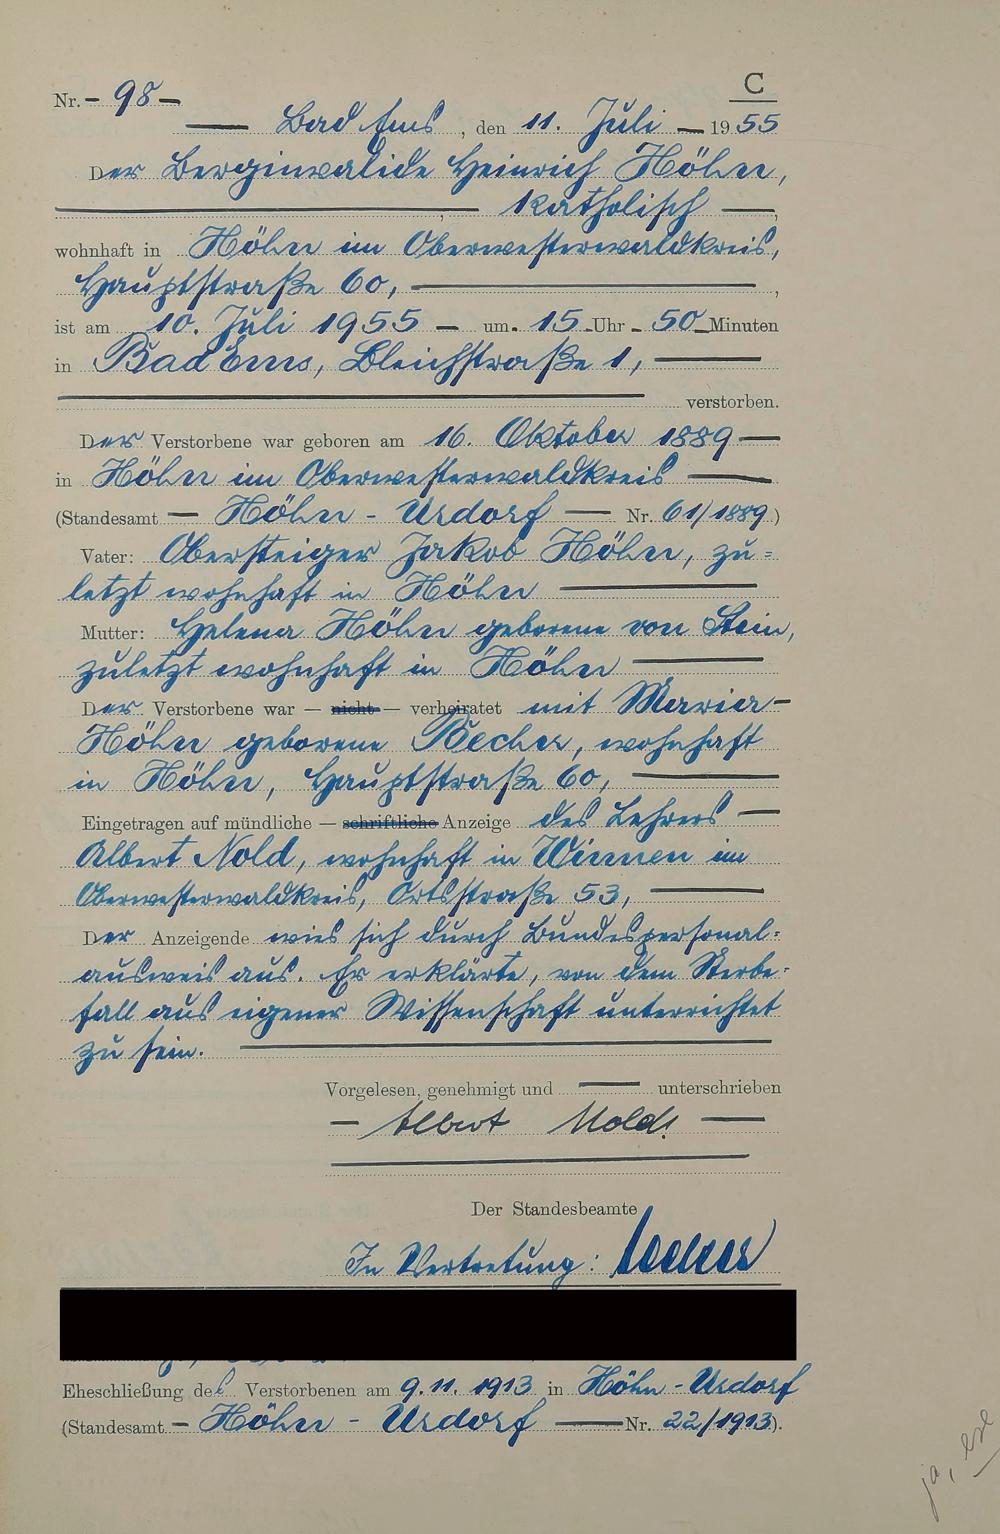 C
Nr. - 98 -
Bad Ems, den 11. Juli 1955
Der Berginvalide Heinrich Höhn,
, katholisch ,
wohnhaft in Höhn im Oberwesterwaldkreis,
Hauptstraße 60, ,
ist am 10. Juli 1955 - um 15 Uhr 50 Minuten
in Bad Ems, Bleichstraße 1,
verstorben.
Der Verstorbene war geboren am 16. Oktober 1889
in Höhn im Oberwesterwaldkreis
(Standesamt - Höhn - Urdorf - Nr. 61/1889)
Vater: Obersteiger Jakob Höhn, zu=
letzt wohnhaft in Höhn
Mutter: Helena Höhn geborene von Stein,
zuletzt wohnhaft in Höhn
Der Verstorbene war — nicht — verheiratet mit Maria
Höhn geborene Becher, wohnhaft
in Höhn, Hauptstraße 60,
Eingetragen auf mündliche — schriftliche Anzeige des Lehrers
Albert Nold, wohnhaft in Winnen im
Oberwesterwaldkreis, Ortsstraße 53,
Der Anzeigende wies sich durch Bundespersonal=
ausweis aus. Er erklärte, von dem Sterbe=
fall aus eigener Wissenschaft unterrichtet
zu sein.
Vorgelesen, genehmigt und unterschrieben
- Albert Nold. -
Der Standesbeamte
In Vertretung:
Eheschließung des Verstorbenen am 9.11.1913 in Höhn - Urdorf
(Standesamt - Höhn - Urdorf - Nr. 22/1913).
ja,